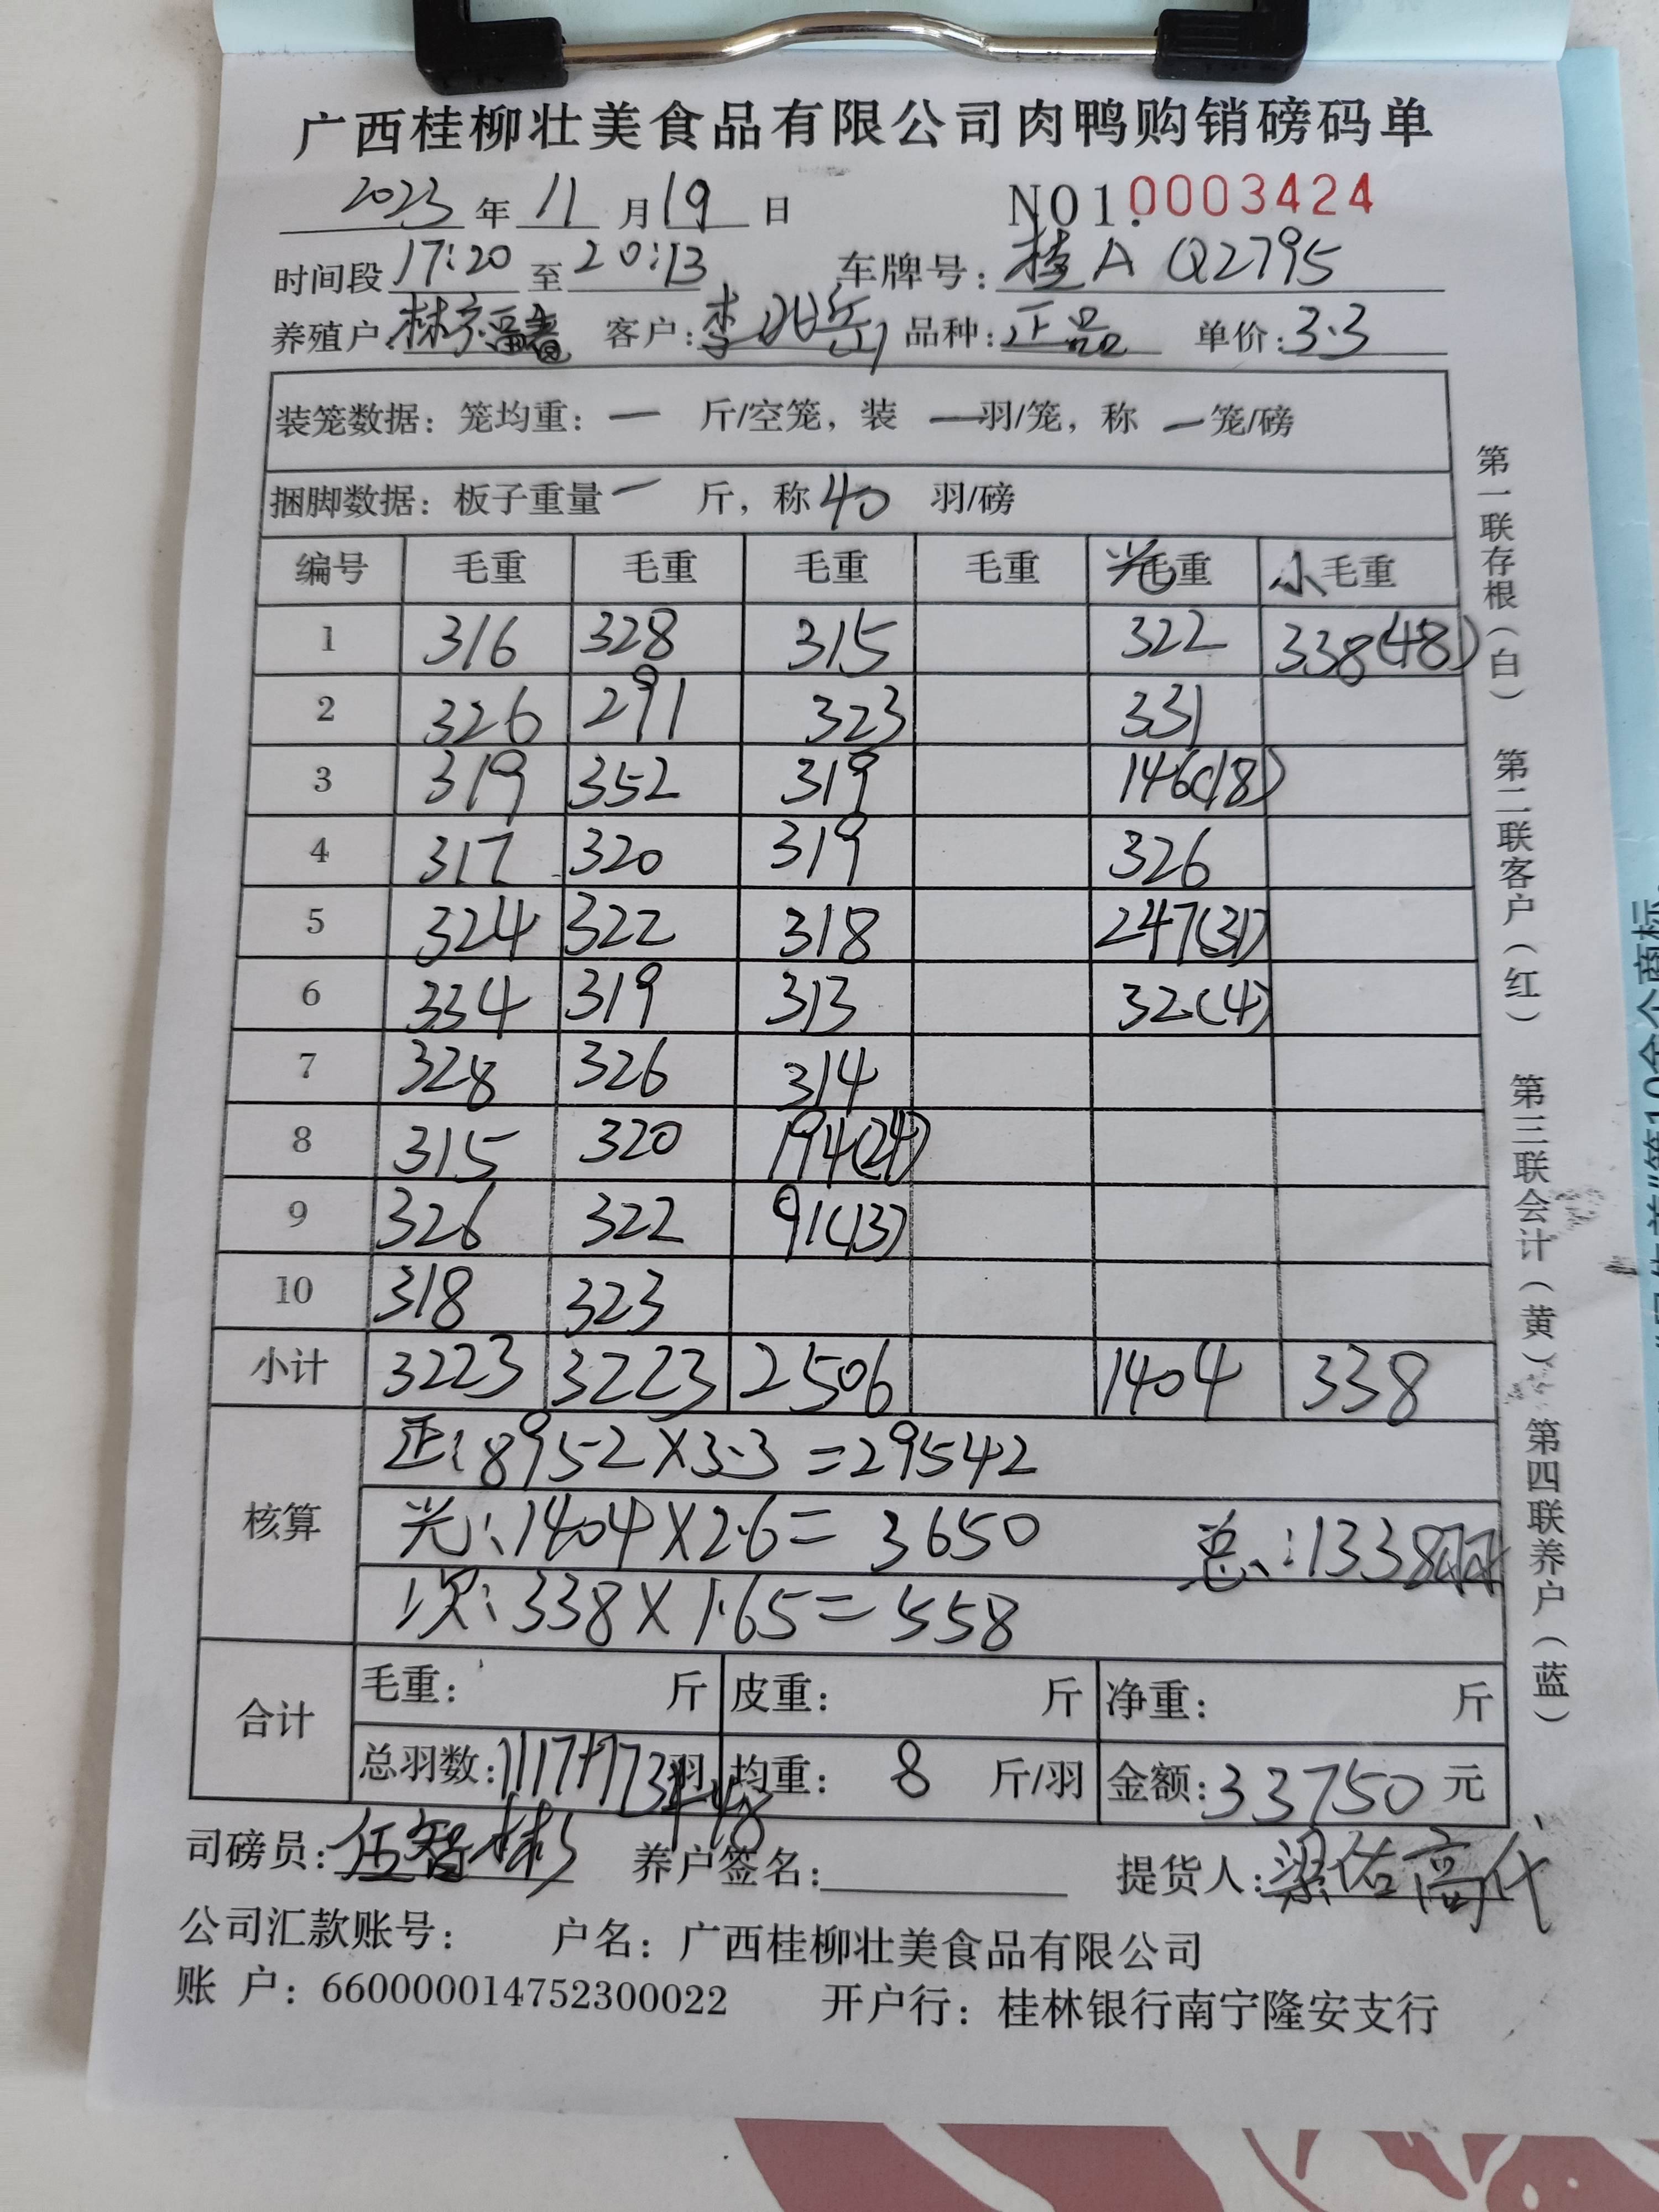 广西桂柳壮美食品有限公司肉鸭购销磅码单
2023 年 11 月 19 日 NO1.0003424
时间段 17:20 至 20:13 车牌号: 桂A Q2795
养殖户: 林 客户: 李兆岳 品种: 正品 单价: 3.3
装笼数据: 笼均重: 一 斤/空笼, 装 一 羽/笼, 称 一 笼/磅
捆脚数据: 板子重量 一 斤, 称 40 羽/磅
编号 毛重 毛重 毛重 毛重 光毛重 小毛重
1 316 328 315 322 338(48)
2 326 291 323 331
3 319 352 319 146(18)
4 317 320 319 326
5 324 322 318 247(31)
6 334 319 313 32(4)
7 328 326 314
8 315 320 194(24)
9 326 322 91(13)
10 318 323
小计 3223 3223 2506 1404 338
核算
正: 8952×3.3=29542
光: 1404×2.6=3650 总: 1338羽
次: 338×1.65=558
合计 毛重: 斤 皮重: 斤 净重: 斤
总羽数: 1117+173+48 羽 均重: 8 斤/羽 金额: 33750 元
司磅员: 伍智彬 养户签名: 提货人: 梁佑高代
公司汇款账号: 户名: 广西桂柳壮美食品有限公司
账 户: 660000014752300022 开户行: 桂林银行南宁隆安支行
第一联存根(白) 第二联客户(红) 第三联会计(黄) 第四联养户(蓝)